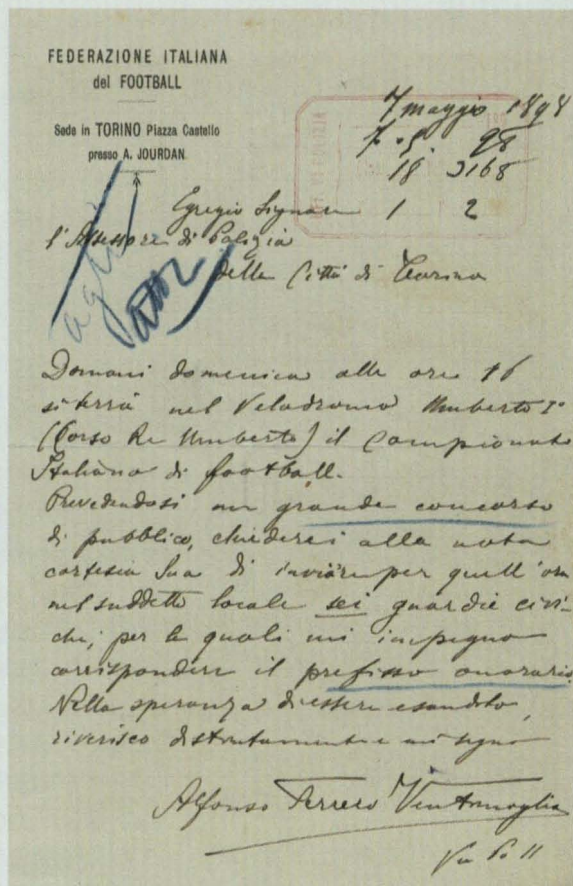 FEDERAZIONE ITALIANA
del FOOTBALL
Sede in TORINO Piazza Castello
presso A. JOURDAN
7 maggio 1898
7 · 5 98
18 3168
1 2
Egregio Signore
l'Assessore di Polizia
della Città di Torino
agli
atti
Domani domenica alle ore 16
si terrà nel Velodromo Umberto I°
(Corso Re Umberto) il Campionato
Italiano di football.
Prevedendosi un grande concorso
di pubblico, chiederei alla nota
cortesia Sua di inviare per quell'ora
nel suddetto locale sei guardie civi-
che, per le quali mi impegno
corrispondere il prefisso onorario.
Nella speranza di essere esaudito,
riverisco distintamente e mi segno
Alfonso Ferrero Ventimiglia
Via Po 11